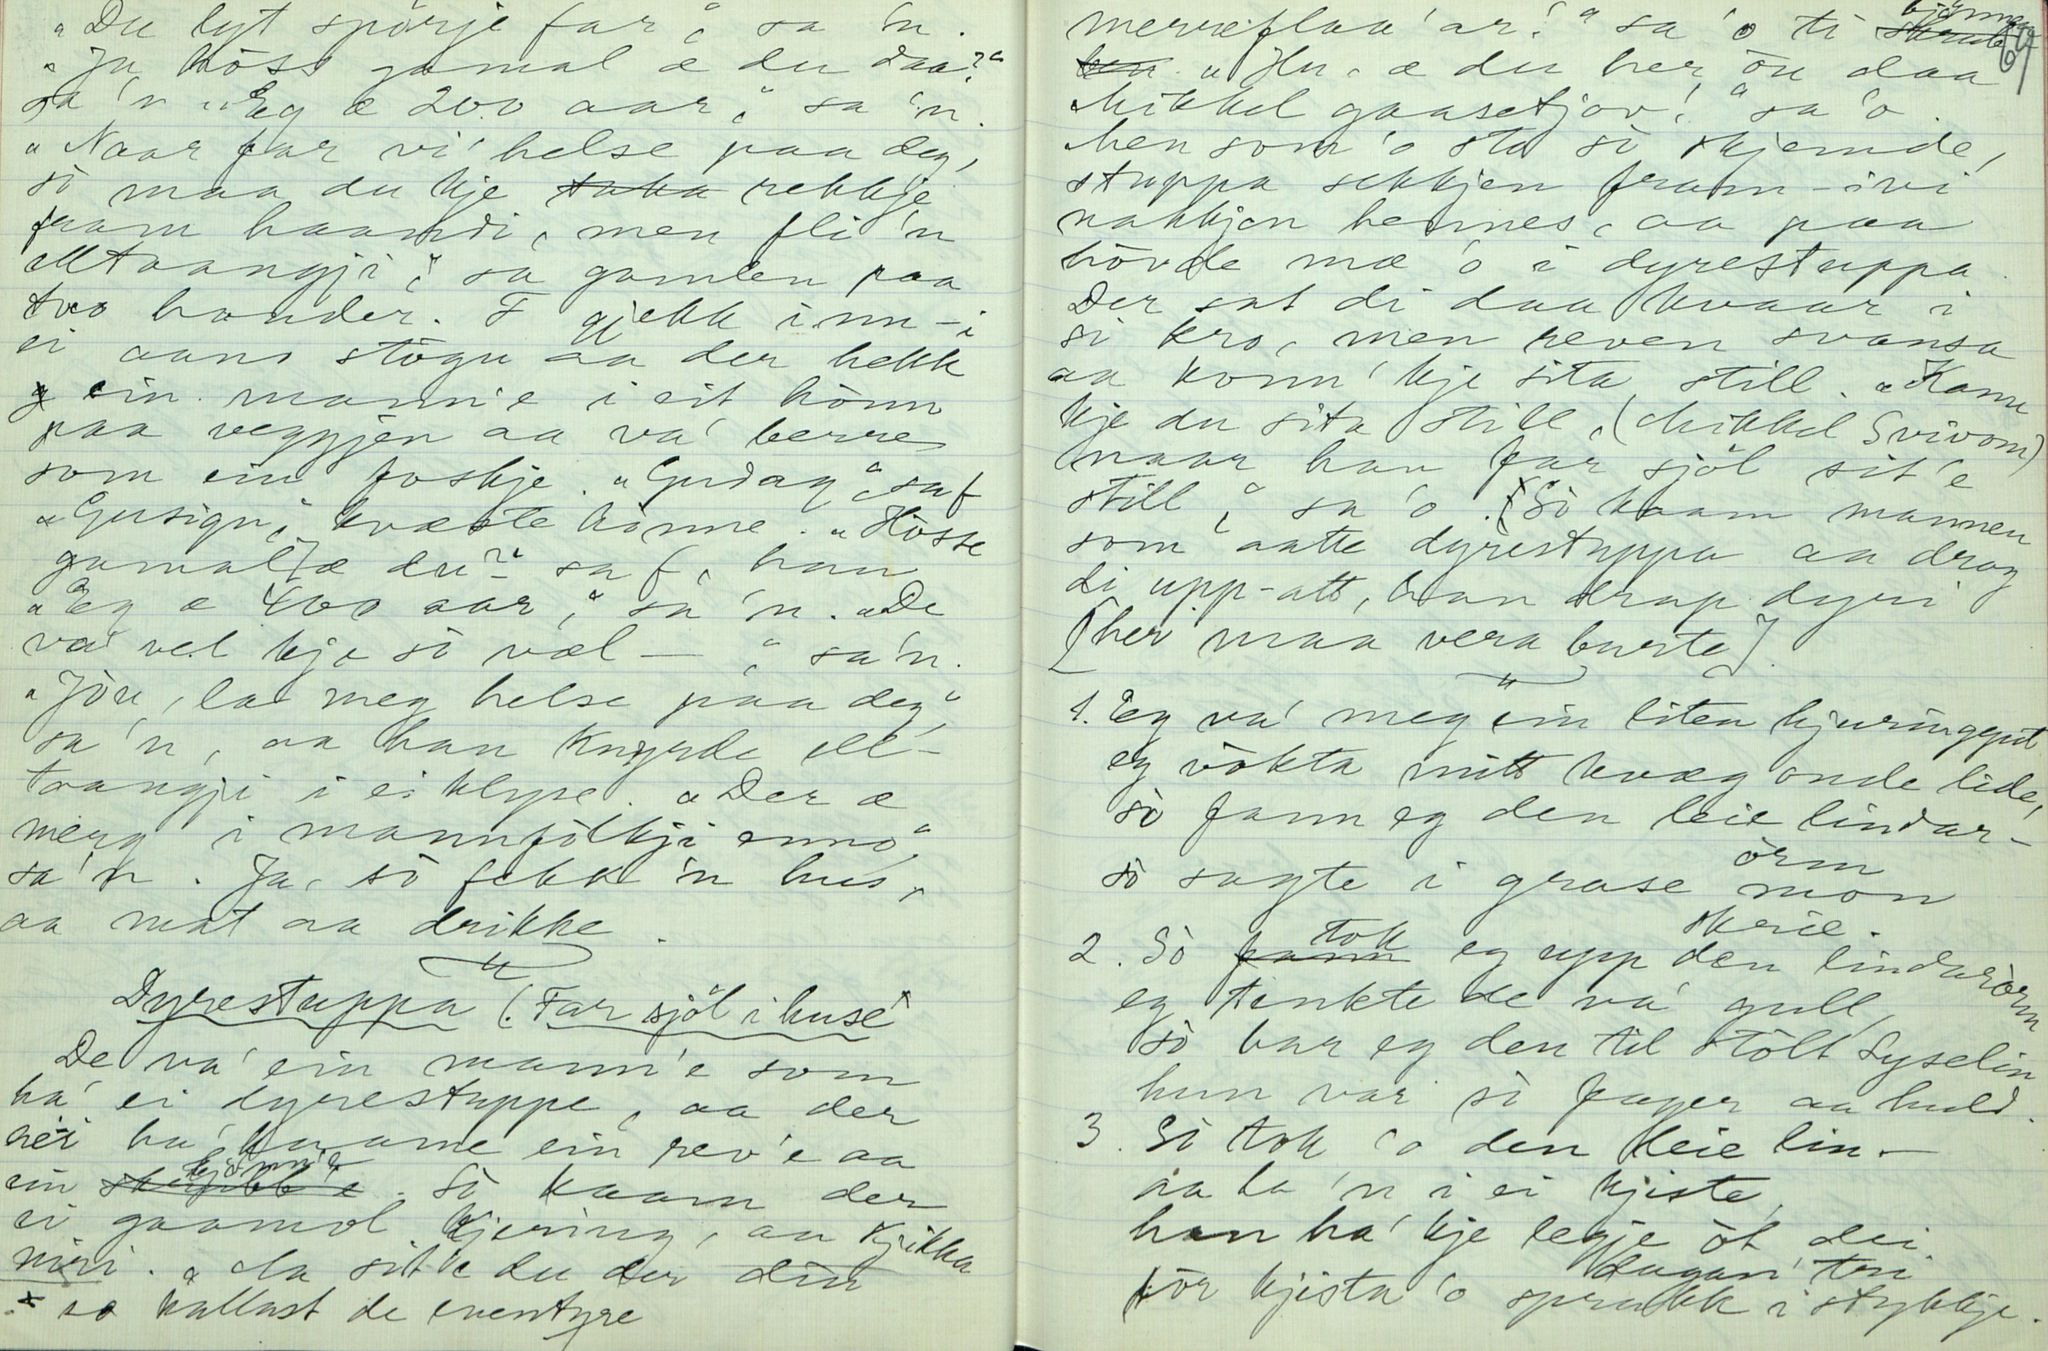 „Du lyt spörje far,“ sa 'n.
„Ja höss gamal æ du daa?“
sa 'n. „Eg æ 200 aar,“ sa 'n.
„Naar far vi' helse paa deg,
sò maa du kje taka rekkje
fram haandi, men fli 'n
elltaangji,“ sa gamlen paa
tvo honder. F gjekk inn-i
ei aanś stògu aa der hekk
ein mann'e i eit hònn
paa veggjen aa va' berre
som ein foskje. „Gudag“, sa f
„Gusign“, kvæste hònne. „Hösse
gamal æ du?“ sa f, han
„Eg æ 400 aar,“ sa 'n. „De
va vel kje sò væl —“ sa 'n.
„Jöu, la meg helse paa deg“
sa 'n, aa han knyrde ell-
taangji i ei klype. „Der æ
merg i mannfölkji enno“,
sa 'n. Ja, sò fekk 'n hus,
aa mat aa drikke.
Dyrestuppa (Far sjöl i husé*
De va' ein mann'e som
ha' ei dyrestuppe, aa der
nei ha' kaame ein rev'e aa
bjönn'e
ein skrubb'e. Sò kaam der
ei gaamol kjering, aa kjikka
niri. „Ja sit'e du der din
* so kallast de eventyre
merræflaa'ar!“ sa 'o ti skrubben
bjönnen
69
ben. „Hu, æ du her öu daa
Mikkel gaasetjov!“ sa 'o.
Men som 'o sto sò skjemde,
stuppa sekkjen fram-ivi
nakkjen hennes, aa paa
hòvde mæ 'o i dyrestuppa.
Der sat di daa kvaar i
si kro, men reven svansa
aa konn' kje sita still. „Kann
kje du sita still, (Mikkel Svivom)
naar han far sjöl sit'e
still,“ sa 'o. Sò kaam mannen
som aatte dyrestuppa aa drog
di upp-att, han drap dyri
[her maa vera burte].
1. Eg va' meg ein liten hjuringgut
eg vòkta mitt kvæg onde lide,
sò fann eg den leie lindar-
örm
sò sagte i grase mon
skrie.
2. Sò fann tok eg upp den lindarörm
eg tenkte de va' gull,
sò bar eg den til stölt Syselin
hun var sò fager aa huld.
3. Sò tok 'o den leie lin-
aa la 'n i ei kjiste,
han ha' kje legje öt dei
dagan' tri
för kjista 'o sprakk i stykkje.